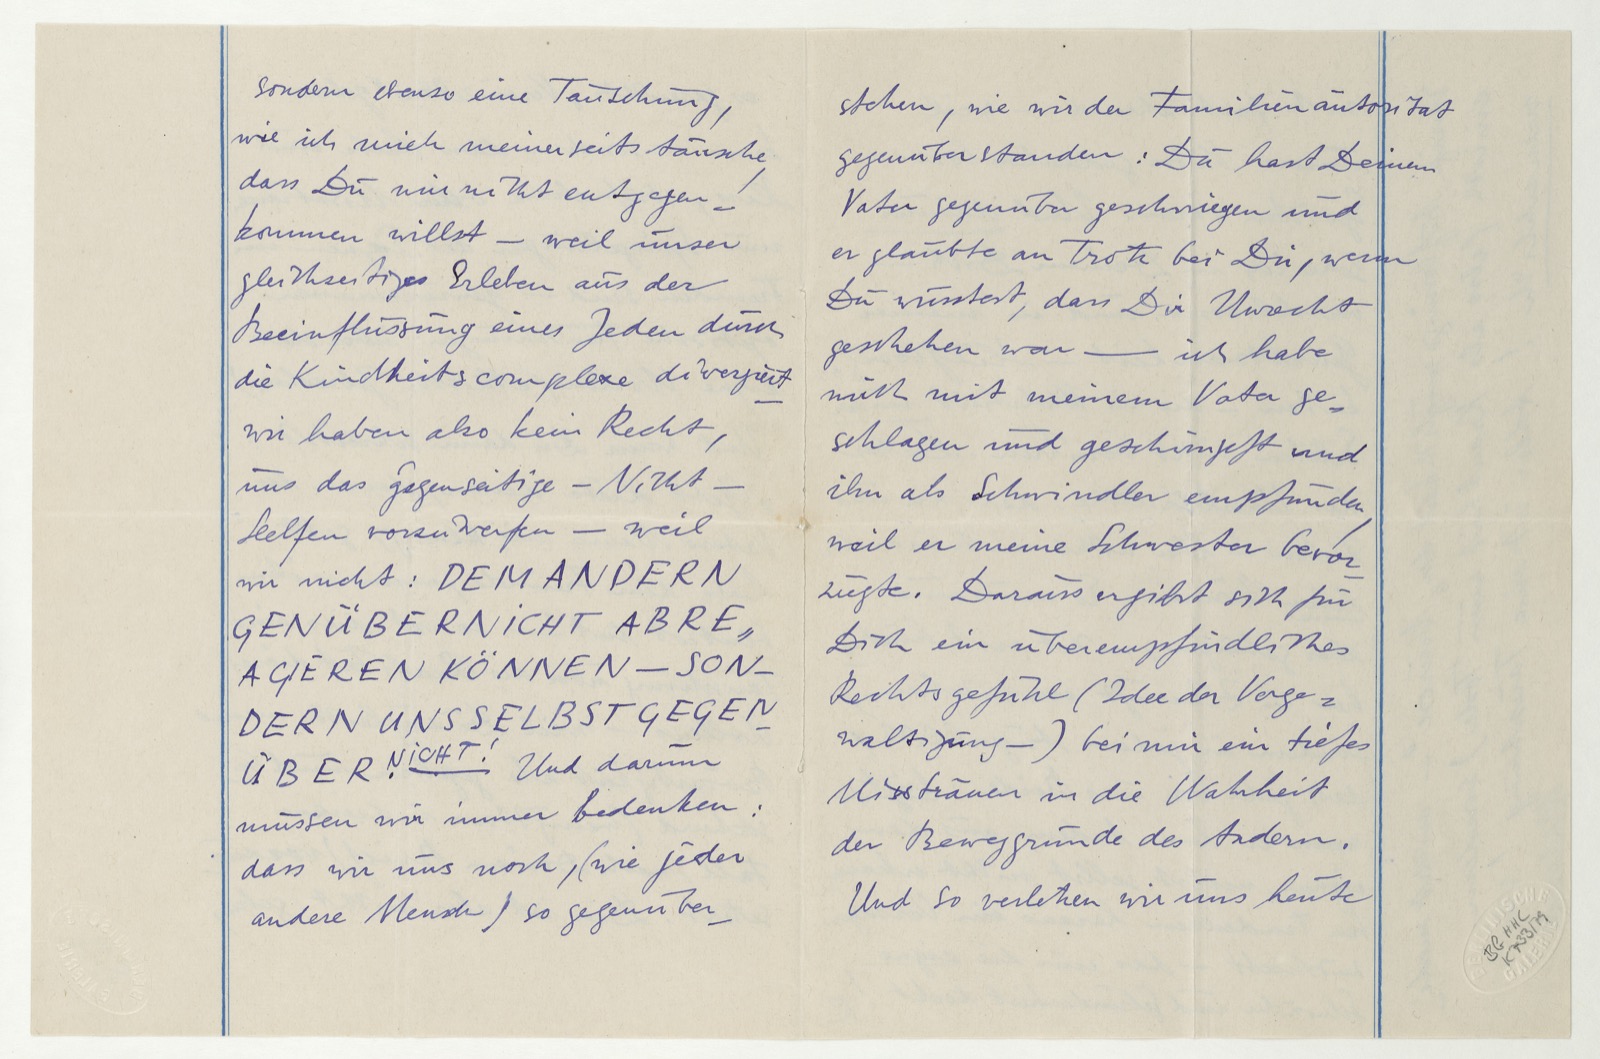 sondern ebenso eine Täuschung,
wie ich mich meinerseits täusche,
dass Du mir nicht entgegen-
kommen willst – weil unser
gleichzeitiges Erleben aus der
Beeinflussung eines Jeden durch
die Kindheitscomplexe divergiert
wir haben also kein Recht,
uns das gegenseitige – Nicht –
Helfen vorzuwerfen – weil
wir nicht: DEM ANDERN
GENÜBER NICHT ABRE„
AGIEREN KÖNNEN – SON-
DERN UNS SELBST GEGEN-
ÜBER NICHT! Und darum
müssen wir immer bedenken:
dass wir uns noch, (wie jeder
andere Mensch) so gegenüber-
stehen, wie wir der Familienautorität
gegenüberstanden: Du hast Deinem
Vater gegenüber geschwiegen und
er glaubte an Trotz bei Dir, wenn
Du wusstest, dass Dir Unrecht
geschehen war — ich habe
mich mit meinem Vater ge-
schlagen und geschimpft und
ihn als Schwindler empfunden,
weil er meine Schwester bevor-
zugte. Daraus ergibt sich für
Dich ein überempfindliches
Rechtsgefühl (Idee der Verge=
waltigung –) bei mir ein tiefes
Misstrauen in die Wahrheit
der Beweggründe des Andern.
Und so verletzen wir uns heute
BG HHC
K 733/79
BERLINISCHE
GALERIE